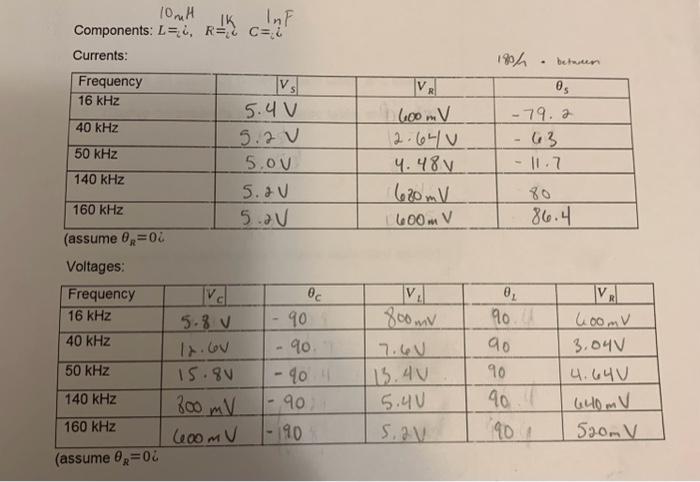 10mH 1K 1nF
Components: L=¿, R=¿ C=¿
Currents:
180/h • between
Frequency |Vs| |VR| θs
16 kHz 5.4 V 600 mV -79.2
40 kHz 5.2 V 2.64 V - 63
50 kHz 5.0V 4.48V - 11.7
140 kHz 5.2V 680mV 80
160 kHz 5.2V 600mV 86.4
(assume θR=0¿
Voltages:
Frequency |Vc| θc |VL| θL |VR|
16 kHz 5.8 V - 90 800mV 90 600mV
40 kHz 12.6V - 90. 7.6V 90 3.04V
50 kHz 15.8V - 90 13.4V 90 4.64V
140 kHz 800 mV - 90 5.4V 90 640mV
160 kHz 600mV -90 5.2V 90 520mV
(assume θR=0¿